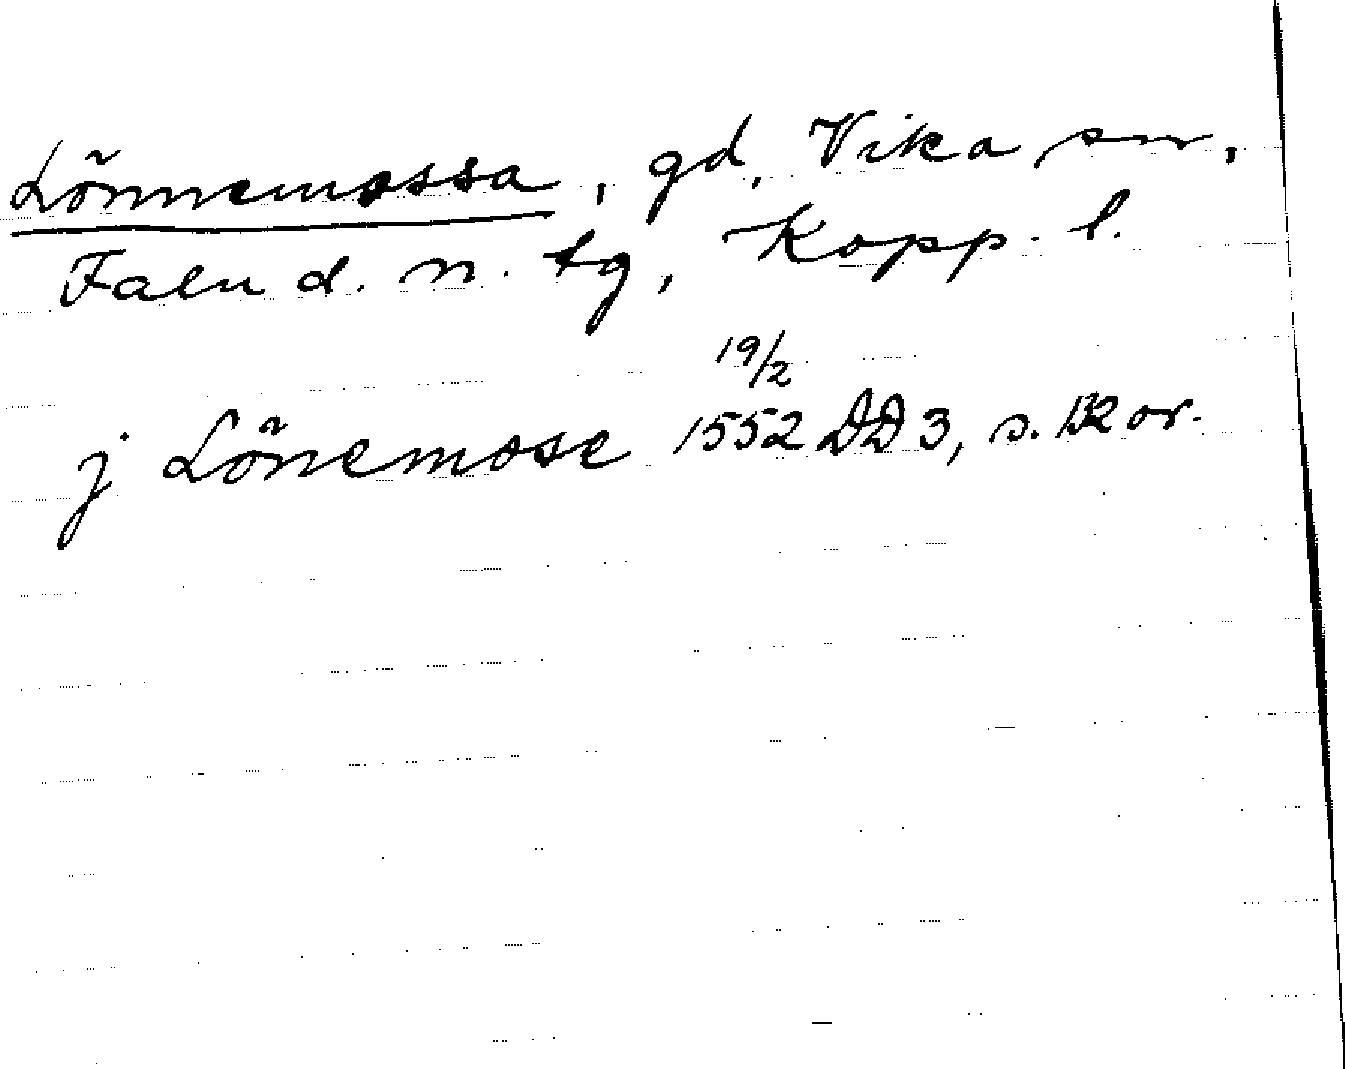 Lönnemossa, gd, Vika sn,
Falu d. n. tg, Kopp. l.
19/2
j Lönemose 1552 DD3, s. 132 or.